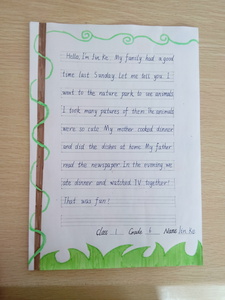 Hello, I'm Jin Ke. My family had a good
time last Sunday. Let me tell you. I
went to the nature park to see animals.
I took many pictures of them. The animals
were so cute. My mother cooked dinner
and did the dishes at home. My father
read the newspaper. In the evening, we
ate dinner and watched TV together!
That was fun!
Class 1 Grade Name Jin Ke